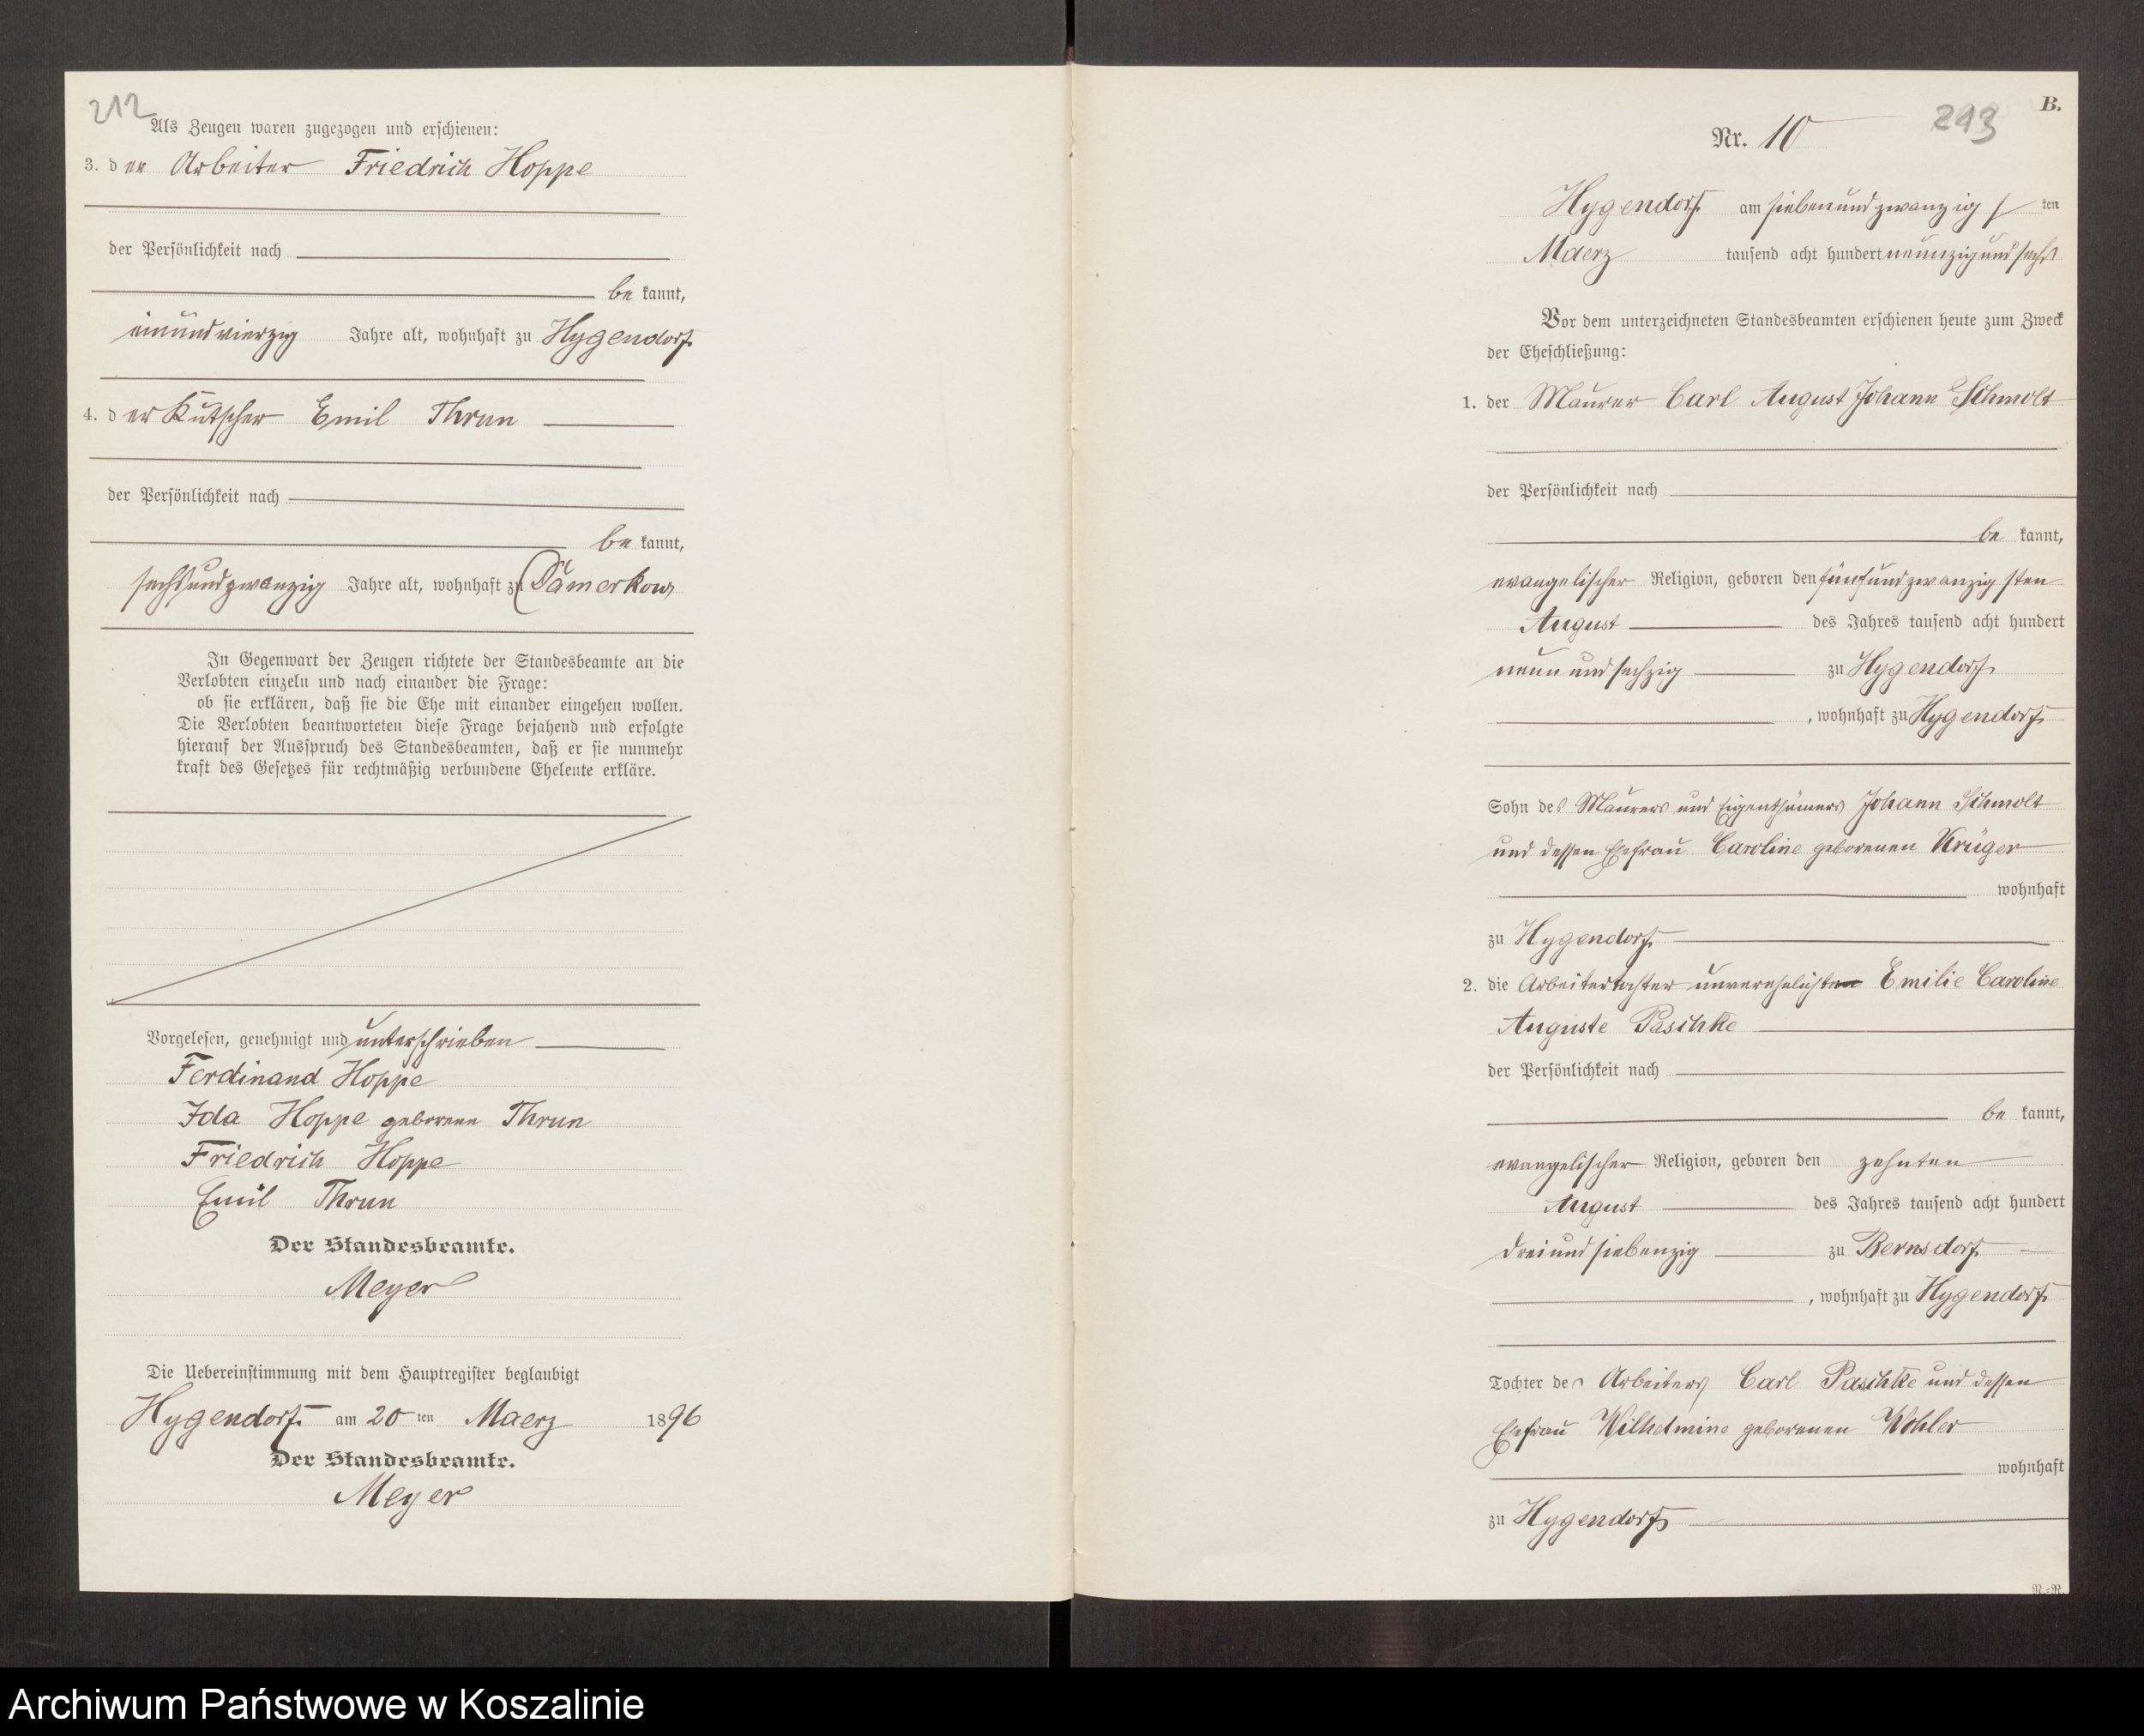 212
Als Zeugen waren zugezogen und erschienen:
3. der Arbeiter Friedrich Hoppe
der Persönlichkeit nach
be kannt,
einundvierzig Jahre alt, wohnhaft zu Hygendorf
4. der Kutscher Emil Thrun
der Persönlichkeit nach
be kannt,
sechsundzwanzig Jahre alt, wohnhaft zu Dämerkow
In Gegenwart der Zeugen richtete der Standesbeamte an die
Verlobten einzeln und nach einander die Frage:
ob sie erklären, daß sie die Ehe mit einander eingehen wollen.
Die Verlobten beantworteten diese Frage bejahend und erfolgte
hierauf der Ausspruch des Standesbeamten, daß er sie nunmehr
kraft des Gesetzes für rechtmäßig verbundene Eheleute erkläre.
Vorgelesen, genehmigt und unterschrieben
Ferdinand Hoppe
Ida Hoppe geborene Thrun
Friedrich Hoppe
Emil Thrun
Der Standesbeamte.
Meyer
Die Uebereinstimmung mit dem Hauptregister beglaubigt
Hygendorf am 20 ten Maerz 1896
Der Standesbeamte.
Meyer
B.
Nr. 10 213
Hygendorf am siebenundzwanzig ten
Maerz tausend acht hundert neunzigundsechs
Vor dem unterzeichneten Standesbeamten erschienen heute zum Zweck
der Eheschließung:
1. der Maurer Carl August Johann Schmolt
der Persönlichkeit nach
be kannt,
evangelischer Religion, geboren den fünfundzwanzigsten
August des Jahres tausend acht hundert
neunundsechzig zu Hygendorf
, wohnhaft zu Hygendorf
Sohn des Maurers und Eigenthümers Johann Schmolt
und dessen Ehefrau Caroline geborenen Krüger
wohnhaft
zu Hygendorf
2. die Arbeitertochter unverehelichte Emilie Caroline
Auguste Paschke
der Persönlichkeit nach
be kannt,
evangelischer Religion, geboren den zehnten
August des Jahres tausend acht hundert
dreiundsiebenzig zu Bernsdorf
, wohnhaft zu Hygendorf
Tochter des Arbeiters Carl Paschke und dessen
Ehefrau Wilhelmine geborenen Wohler
wohnhaft
zu Hygendorf
N.=R.
Archiwum Państwowe w Koszalinie